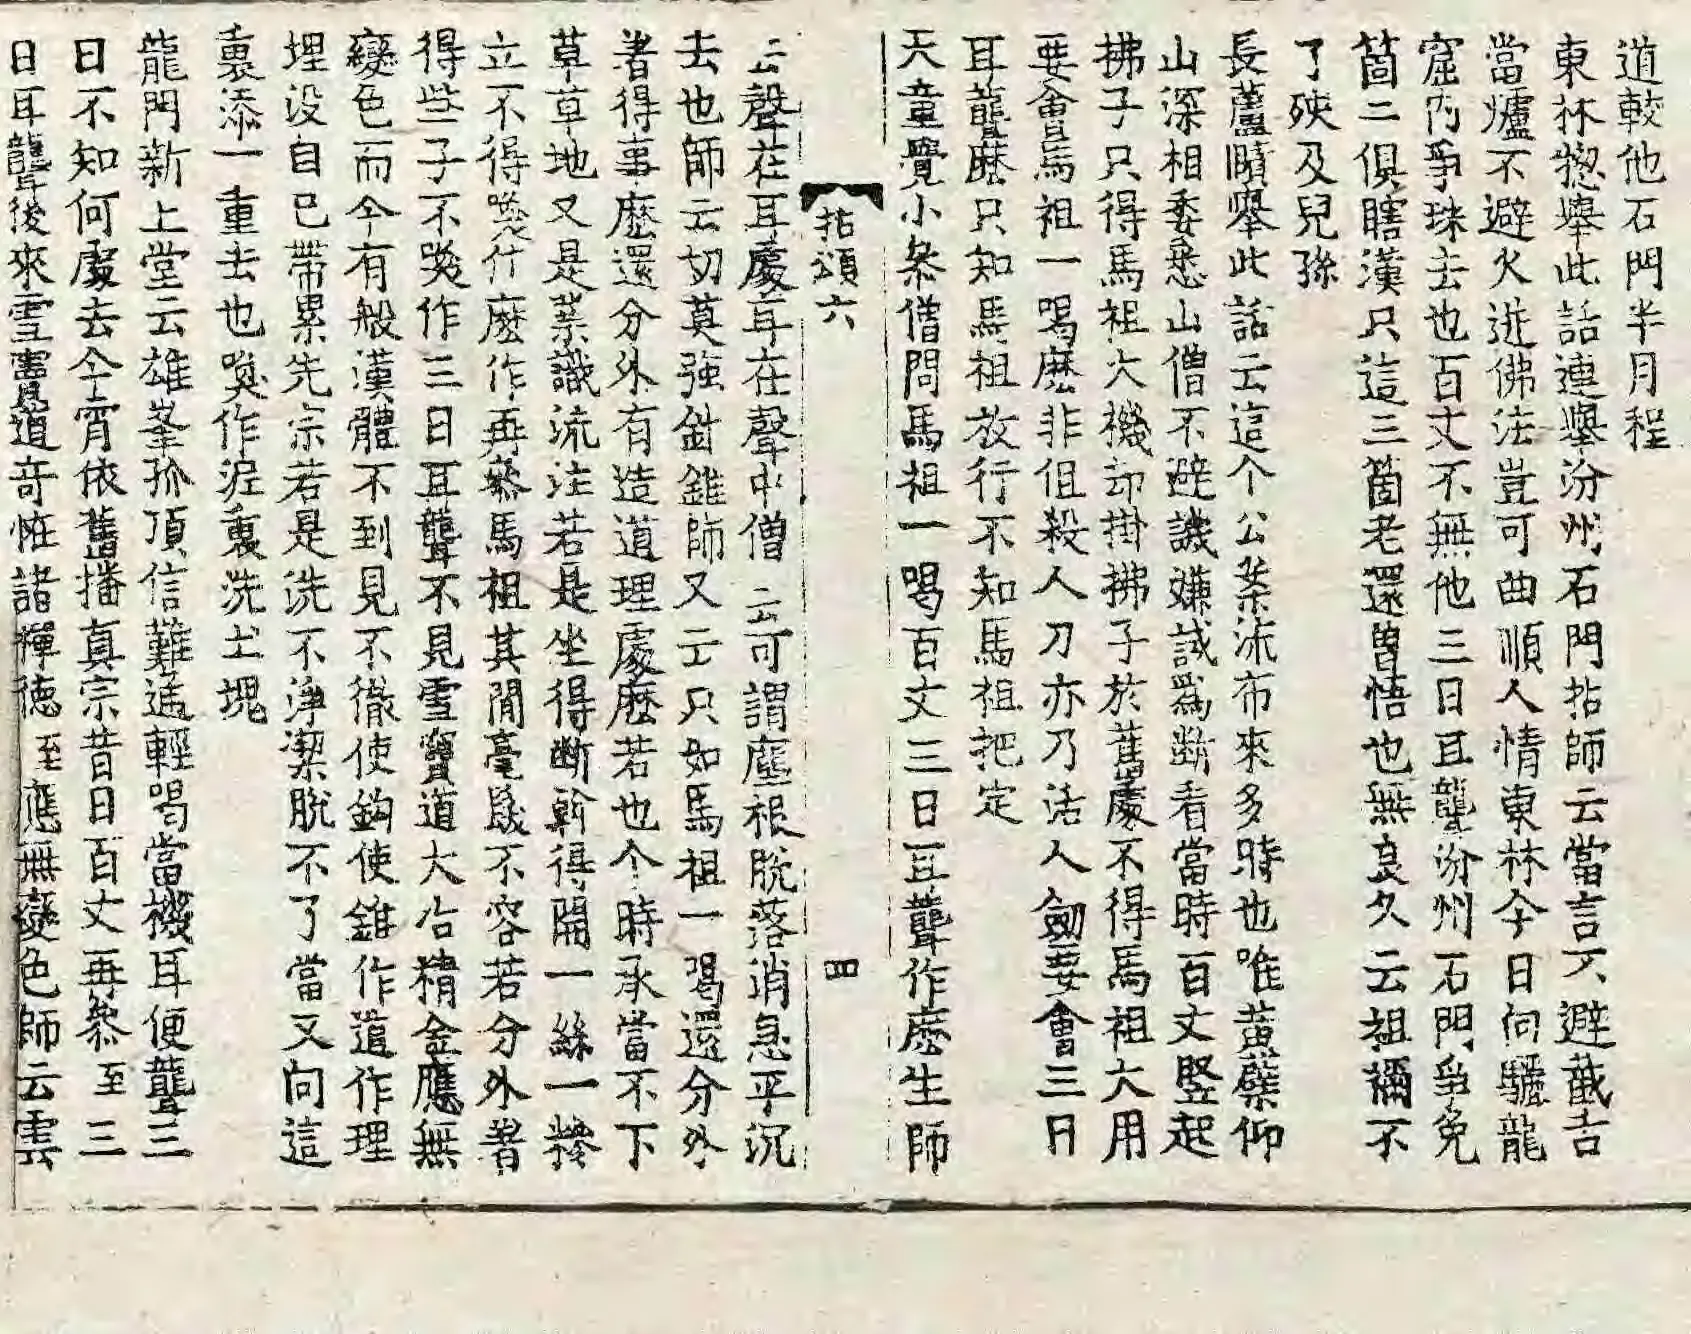 道較他石門半月程
東林惣擧此話連擧汾州石門拈師云當言不避截舌
當爐不避火迸佛法豈可曲順人情東林今日向驪龍
窟內爭珠去也百丈不無他三日耳聾汾州石門爭免
箇二俱瞎漢只這三箇老還曾悟也無良久云祖禰不
了殃及兒孫
長蘆賾擧此話云這个公案流布來多時也唯黃蘗仰
山深相委悉山僧不避譏嫌試爲斷看當時百丈竪起
拂子只得馬祖大機却掛拂子於舊處不得馬祖大用
要會馬祖一喝麽非但殺人刀亦乃活人劒要會三日
耳聾麽只知馬祖放行不知馬祖把定
天童覺小叅僧問馬祖一喝百丈三日耳聾作麽生師
拈頌六 四
云聲在耳處耳在聲中僧云云可謂塵根脫落消息平沉
去也師云切莫強針錐師又云只如馬祖一喝還分外
著得事麽還分外有造道理處麽若也个時承當不下
草草地又是業識流注若是坐得斷斡得開一絲一糝
立不得喚什麽作再叅馬祖其閒毫髮不容若分外著
得些子不喚作三日耳聾不見雪竇道大冶精金應無
變色而今有般漢體不到見不徹使鈎使錐作道作理
埋没自己帶累先宗若是洗不淨潔脫不了當又向這
裏添一重去也喚作泥裏洗土塊
龍門新上堂云雄峯孤頂信難逃輕喝當機耳便聾三
日不知何處去今宵依舊播真宗昔日百丈再叅至三
日耳聾後來雪竇道奇恠諸禪德至應無變色師云雲